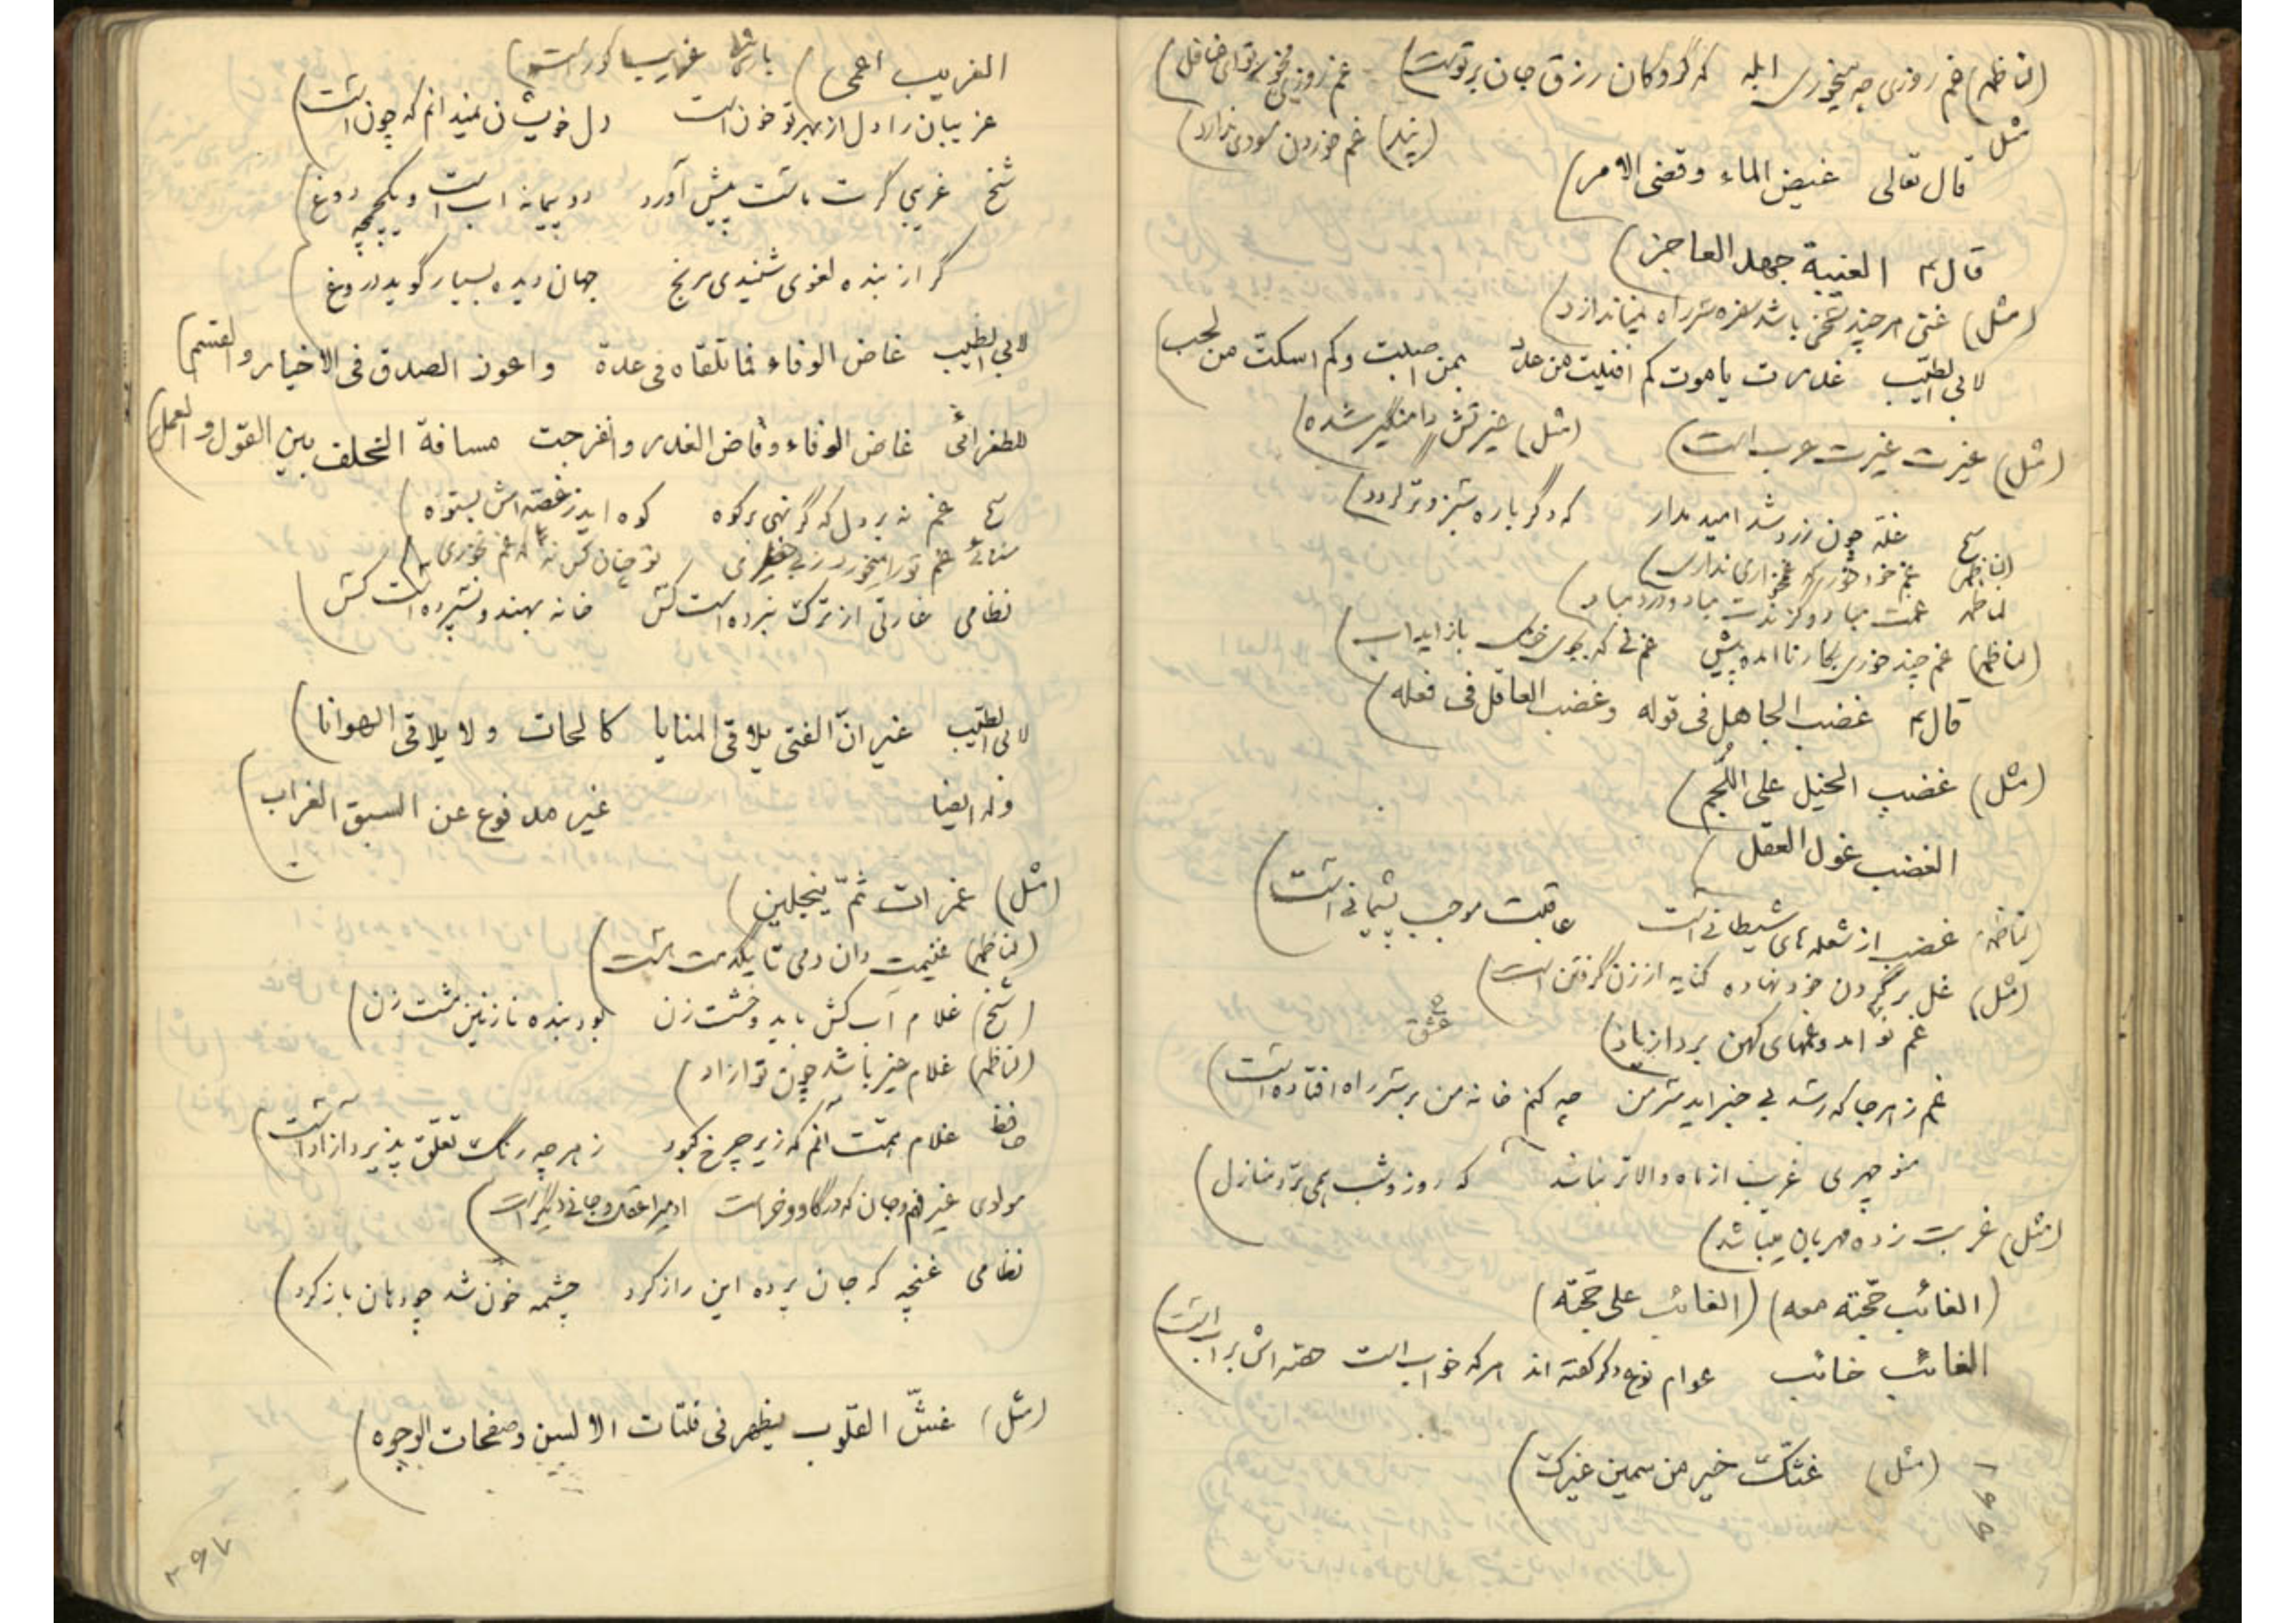 (لناظمه) غم روزی چه میخوری ابله که گروکان رزق جان بر توست) غم روزی مخور تو ای غافل)
مثل
(نیز) غم خوردن سودی ندارد)
قال تعالی غیض الماء وقضی الامر)
قال ع الغیبة جهد العاجز)
(مثل) غنی هر چند سخی باشد سفره سر راه نیاندازد)
لابی الطیب غدرت یا موت کم افنیت من عدد بمن اصبت وکم اسکت من لجب)
(مثل) غیرت غیرت عرب است) (مثل) غیرتش دامنگیر شده)
غله چون زرد شد امید مدار که دگر باره سبز و تر گردد)
لناظمه غم خود خور که غمخواری نداری)
لناظمه غمت مباد و گزندت مباد و درد مباد)
(لناظمه) غم چند خوری بکار ناآمده پیش غم نی که بجوی خشک باز اید آب)
قال ع غضب الجاهل فی قوله وغضب العاقل فی فعله)
(مثل) غضب الخیل علی اللجم)
الغضب غول العقل)
(لناظمه) غضب از شعله های شیطانی است عاقبت موجب پشیمانی است)
(مثل) غل بر گردن خود نهاده کنایه از زن گرفتن است)
غم نو آمد و غمهای کهن برد از یاد)
عشق
غم ز هر جا که رسد بی خبر اید سر من چه کنم خانه من بر سر راه افتاده است)
منوچهری غریب از ماه والاتر نباشد که روز و شب همی برد منازل)
(مثل) غربت زده مهربان میباشد)
(الغائب حجته معه) (الغائب علی حجته)
الغائب خائب عوام نوع دگر گفته اند هر که خواب است حصه اش بر آب است)
(مثل) غثک خیر من سمین غیرک)
الغریب اعمی) پارسی غریب کور است)
غریبان را دل از بهر تو خون است دل خویشان نمیدانم که چون است)
شیخ غریبی گرت ماست پیش آورد دو پیمانه اب است و یکچمچه دوغ)
گر از بنده لغوی شنیدی مرنج جهان دیده بسیار گوید دروغ
لابی الطیب غاض الوفاء فما تلقاه فی عدة واعوز الصدق فی الاخبار والقسم)
للطغرائی غاض الوفاء وفاض الغدر وانفرجت مسافة الخلف بین القول والعمل)
غم نه بر دل که گر نهی بر کوه کوه اید ز غصه اش بستوه)
سنائی غم تو را میخورد
نظامی غارتی از ترک نبرده است کس خانه بهندو نسپرده است کس)
لابی الطیب غیر ان الفتی یلاقی المنایا کالحات ولا یلاقی الهوانا)
وله ایضا غیر مدفوع عن السبق العراب)
(مثل) غمرات ثم ینجلین)
(لناظمه) غنیمت دان دمی تا یکدمت هست)
(شیخ) غلام آب کش باید و خشت زن بود بنده نازنین مشت زن)
(لناظمه) غلام غیر باشد چون تو ازاد)
حافظ غلام همت آنم که زیر چرخ کبود ز هر چه رنگ تعلق پذیرد ازاد است)
مولوی غیر فهم و جان که در گاو و خر است ادمیرا عقل و جانی دیگر است)
نظامی غنچه که جان پرده این راز کرد چشمه خون شد چو دهان باز کرد)
(مثل) غش القلوب یظهر فی فلتات الالسن وصفحات الوجوه)